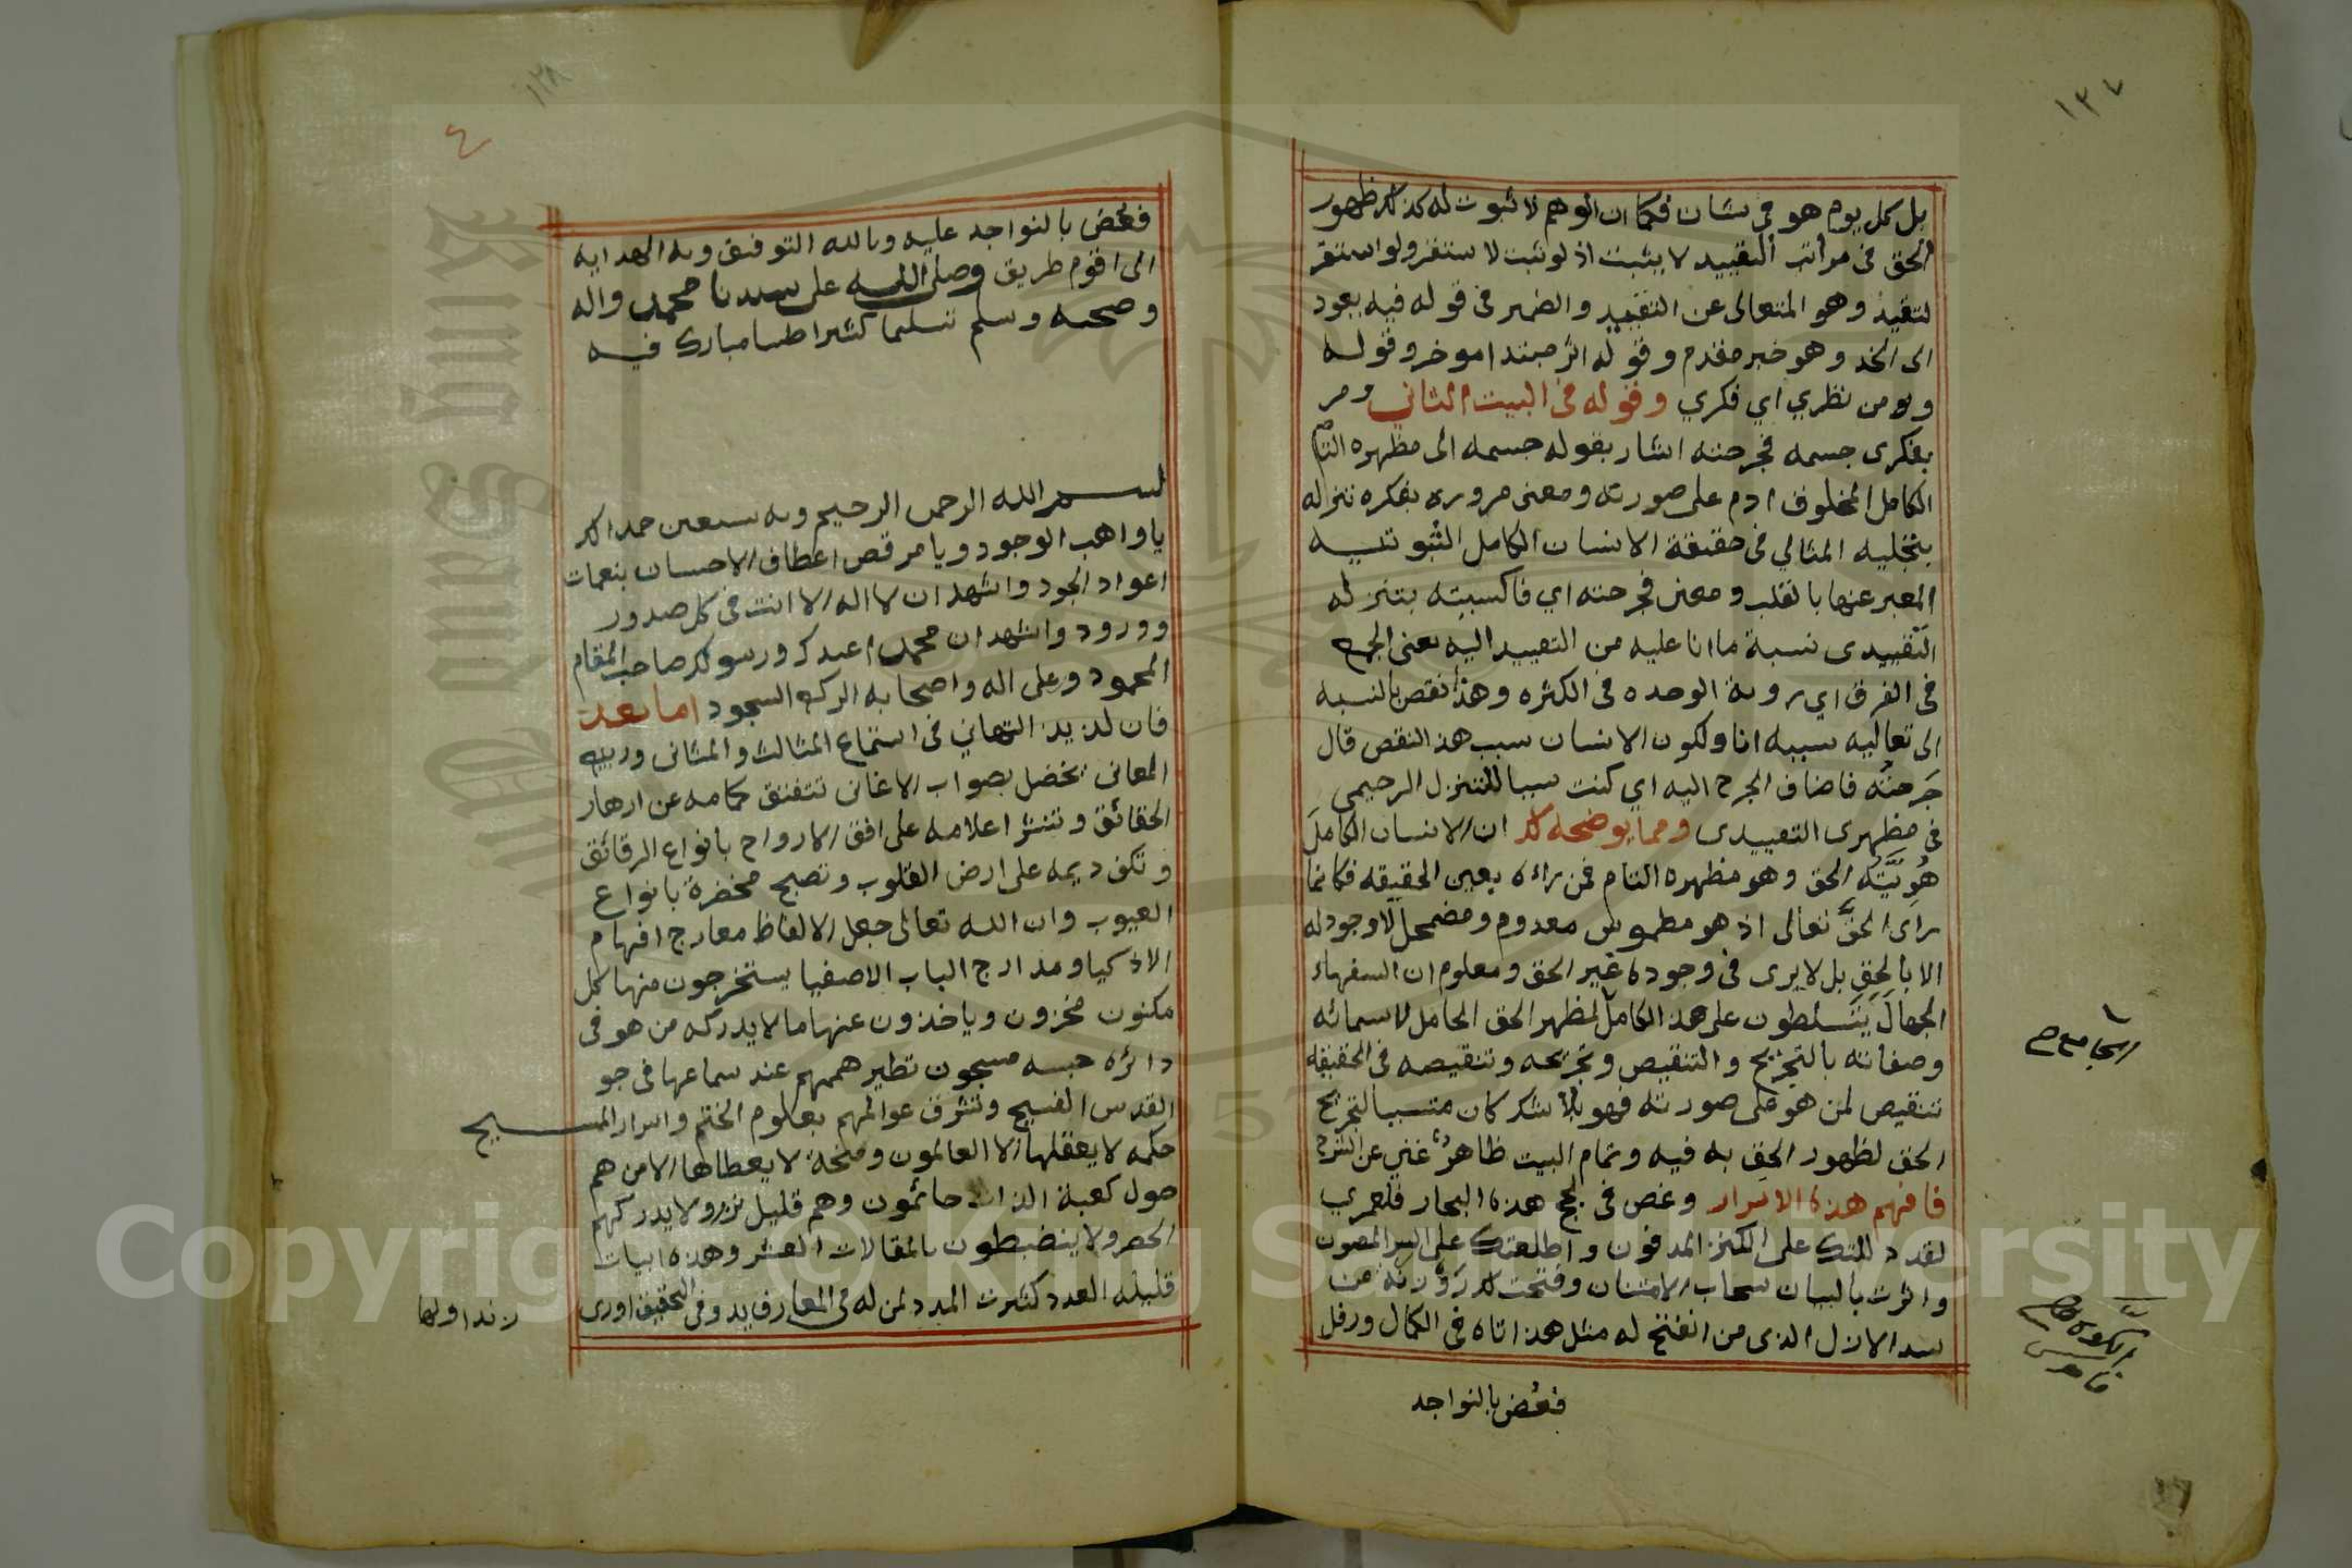 ١٣٧
بل كل يوم هو في شان فكما ان الوهم لا ثبوت له كذلك ظهور
الحق في مراتب التقييد لا يثبت اذ لو ثبت لاستقر ولو استقر
لتقيد وهو المتعالى عن التقييد والضمير في قوله فيه يعود
الى الخد وهو خبر مقدم وقوله اثر مبتدا موخر وقوله
ومن نظري اي فكري وقوله في البيت الثاني ومر
بفكرى جسمه فجرحته اشار بقوله جسمه الى مظهره التام
الكامل المخلوق ادم على صورته ومعنى مروره بفكره تنزله
بتجليه المثالي في حقيقة الانسان الكامل الثبوتيه
المعبر عنها بالقلب ومعنى فجرحته اي فاكسبته بتنزله
التقييدى نسبة ما انا عليه من التقييد اليه بمعنى الجمع
في الفرق اي روية الوحده في الكثره وهذا نقص بالنسبه
الى تعاليه سببه انا ولكون الانسان سبب هذا النقص قال
جَرحتُه فاضاف الجرح اليه اي كنت سببا للتنزل الرحيمي
في مظهرى التقييدى ومما يوضحه لك ان الانسان الكامل
هُوِيَّته الحق وهو مظهره التام فمن راه بعين الحقيقه فكانما
راى الحق تعالى اذ هو مطموس معدوم ومضمحل لا وجود له
الا بالحق بل لا يرى في وجوده غير الحق ومعلوم ان السفهاء
الجهال يتسلطون على هذا الكامل المظهر الحق الحامل لاسمائه
وصفاته بالتجريح والتنقيص وتجريحه وتنقيصه في الحقيقه
تنقيص لمن هو على صورته فهو بلا شك كان متسببا لتجريح
الحق لظهور الحق به فيه وتمام البيت ظاهر غني عن الشرح
فافهم هذه الاسرار وغص في لجج هذه البحار فلعمري
لقد دللتك على الكنز المدفون واطلعتك على السر المصون
واثرت بالبيان سحاب الامتنان وفتحت لك روزنة من
سد الازل الذى من انفتح له مثل هذا تاه في الكمال ورفل
فعُض بالنواجد
الجامع صح
الكوة
قاموس
١٣٨
٤
فعُض بالنواجد عليه وبالله التوفيق وبه الهدايه
الى اقوم طريق وصلى الله على سيدنا محمد واله
وصحبه وسلم تسليما كثيرا طيبا مبارك فيه
بسم الله الرحمن الرحيم وبه نستعين حمدا لك
يا واهب الوجود ويا مرقص اعطاف الاحسان بنغمات
اعواد الجود واشهد ان لا اله الا انت في كل صدور
وورود واشهد ان محمدا عبدك ورسولك صاحب المقام
المحمود وعلى اله واصحابه الركع السجود اما بعد
فان لذيذ التهاني في استماع المثالث والمثاني
المعاني بصواب الاغاني تتفتق كمامه عن ازهار
الحقائق وتنشر اعلامه على افق الارواح بانواع الرقائق
وتكف ديمه على ارض القلوب وتصبح مخضرة بانواع
الغيوب وان الله تعالى جعل الالفاظ معارج افهام
الاذكيا ومدارج الباب الاصفيا يستخرجون منها كل
مكنون مخزون وياخذون عنها ما لا يدركه من هو في
دائره حبسه مسجون تطير هممهم عند سماعها في جو
القدس الفسيح وتشرق عوالمهم بعلوم الختم واسرار المسيح
حكمه لا يعقلها الا العالمون ومنحة لا يعطاها الا من هم
حول كعبة الذات حائمون وهم قليل نزر ولا يدركهم
الحصر ولا ينضبطون بالمقالات العشر وهذه ابيات
قليله العدد كثيرت المدد لمن له في المعارف يد وفي التحقيق اورى
زند اولها
Copyright © King Saud University
King Saud University